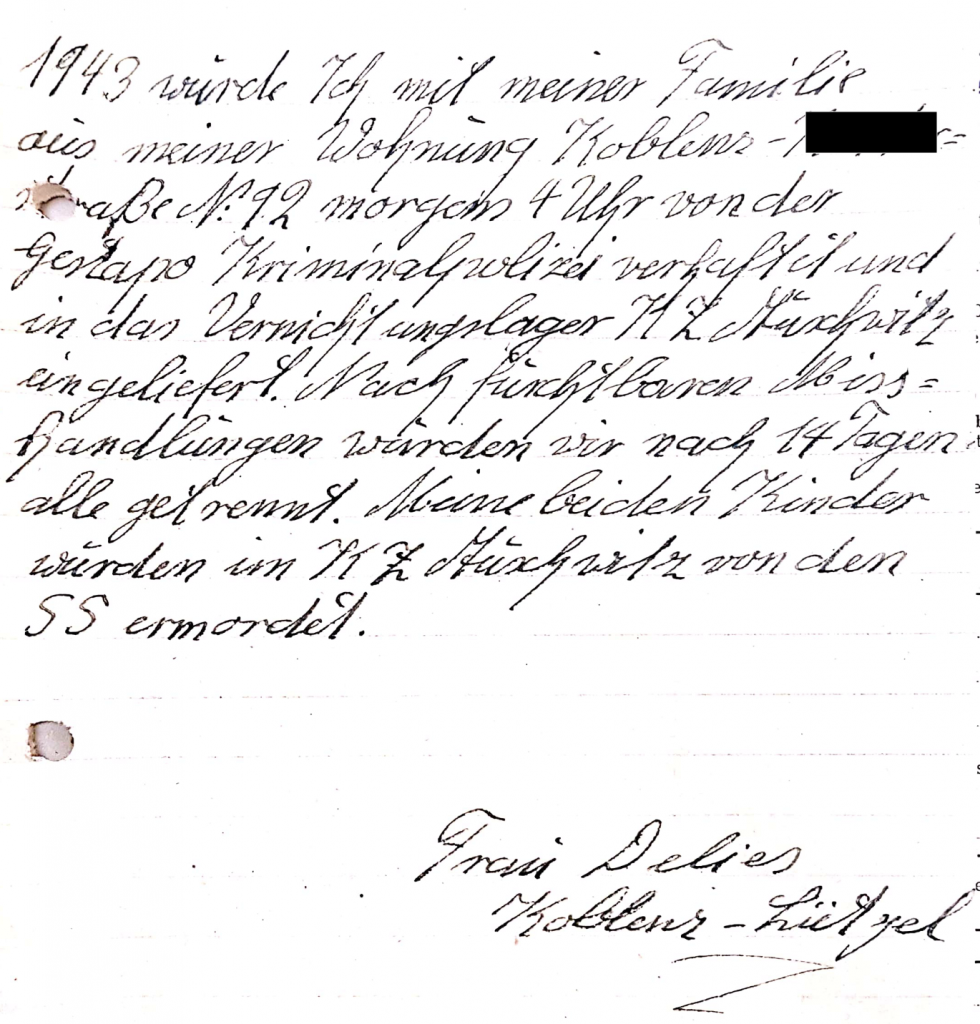 1943 wurde Ich mit meiner Familie
aus meiner Wohnung Koblenz-
straße N: 92 morgens 4 Uhr von der
Gestapo Kriminalpolizei verhaftet und
in das Vernichtungslager KZ Auschwitz
eingeliefert. Nach furchtbaren Miss=
handlungen wurden wir nach 14 Tagen
alle getrennt. Meine beiden Kinder
wurden im KZ Auschwitz von den
SS ermordet.
Frau Delies
Koblenz-Lützel